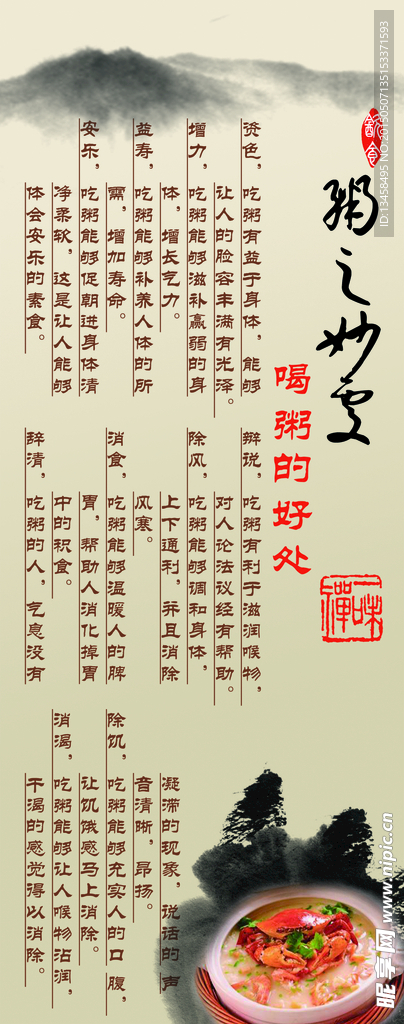 飲食
粥之妙
喝粥的好处
一味禪
资色,吃粥有益于身体,能够
让人的脸容丰满有光泽。
增力,吃粥能够滋补羸弱的身
体,增长气力。
益寿,吃粥能够补养人体的所
需,增加寿命。
安乐,吃粥能够促朝进身体清
净柔软,这是让人能够
体会安乐的素食。
辩说,吃粥有利于滋润喉物,
对人论法议经有帮助。
除风,吃粥能够调和身体,
上下通利,并且消除
风寒。
消食,吃粥能够温暖人的脾
胃,帮助人消化掉胃
中的积食。
辞清,吃粥的人,气息没有
凝滞的现象,说话的声
音清晰,昂扬。
除饥,吃粥能够充实人的口腹,
让饥饿感马上消除。
消渴,吃粥能够让人喉物沾润,
干渴的感觉得以消除。
ID:13458495 NO:20150507135153371593
昵享网 www.nipic.cn